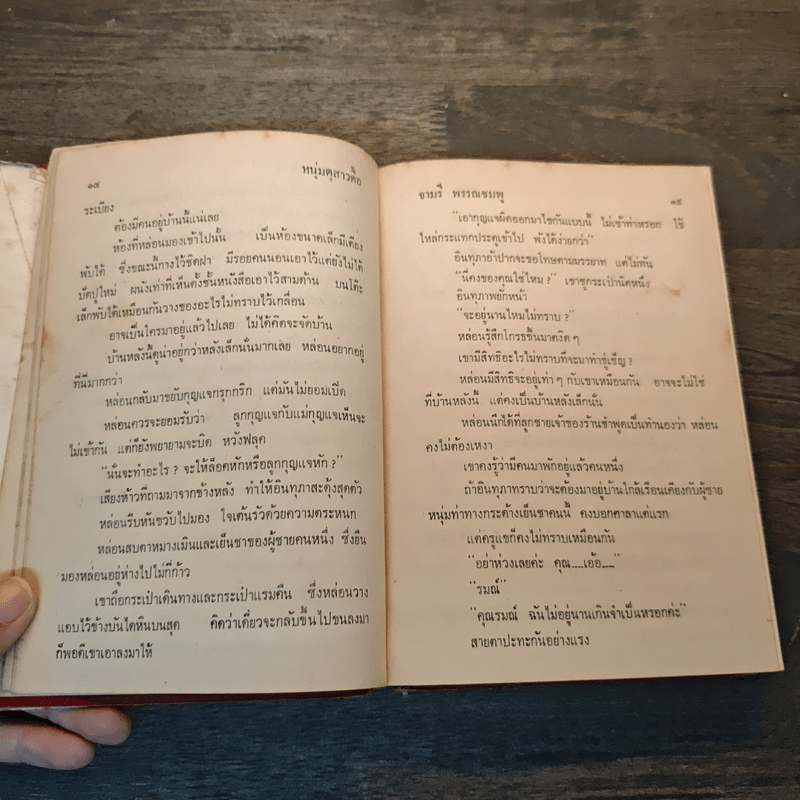 ๑๔ หนุ่มดุสาวดื้อ
ระเบียง
ต้องมีคนอยู่บ้านนี้แน่เลย
ห้องที่หล่อนมองเข้าไปนั้น เป็นห้องขนาดเล็กมีเตียง
พับได้ ซึ่งขณะนี้กางไว้ชิดฝา มีรอยคนนอนเอาไว้แต่ยังไม่ได้
ปัดปูใหม่ ผนังเท่าที่เห็นตั้งชั้นหนังสือเอาไว้สามด้าน บนโต๊ะ
เล็กพับได้เหมือนกันวางของอะไรไม่ทราบไว้เกลื่อน
อาจเป็นใครมาอยู่แล้วไปเลย ไม่ได้คิดจะจัดบ้าน
บ้านหลังนี้ดูน่าอยู่กว่าหลังเล็กนั่นมากเลย หล่อนอยากอยู่
ที่นี่มากกว่า
หล่อนกลับมาขยับกุญแจกรุกกริก แต่มันไม่ยอมเปิด
หล่อนควรจะยอมรับว่า ลูกกุญแจกับแม่กุญแจเห็นจะ
ไม่เข้ากัน แต่ก็ยังพยายามจะบิด หวังฟลุค
"นั่นจะทำอะไร ? จะให้ล็อคหักหรือลูกกุญแจหัก ?"
เสียงห้าวที่ถามมาจากข้างหลัง ทำให้อินทุภาสะดุ้งสุดตัว
หล่อนรีบหันขวับไปมอง ใจเต้นรัวด้วยความตระหนก
หล่อนสบตาหมางเมินและเย็นชาของผู้ชายคนหนึ่ง ซึ่งยืน
มองหล่อนอยู่ห่างไปไม่กี่ก้าว
เขาถือกระเป๋าเดินทางและกระเป๋าแรมคืน ซึ่งหล่อนวาง
แอบไว้ข้างบันไดหินบนสุด คิดว่าเดี๋ยวจะกลับขึ้นไปขนลงมา
ก็พอดีเขาเอาลงมาให้
จามรี พรรณชมพู ๑๕
"เอากุญแจผิดออกมาไขกันแบบนี้ ไม่เข้าท่าหรอก ใช้
ไหล่กระแทกประตูเข้าไป พังได้ง่ายกว่า"
อินทุภาอ้าปากจะขอโทษตามมรรยาท แต่ไม่ทัน
"นี่คงของคุณใช่ไหม ?" เขาชูกระเป๋านิดหนึ่ง
อินทุภาพยักหน้า
"จะอยู่นานไหมไม่ทราบ ?"
หล่อนรู้สึกโกรธขึ้นมาตงิด ๆ
เขามีสิทธิอะไรไม่ทราบที่จะมาทำขู่เข็ญ ?
หล่อนมีสิทธิจะอยู่เท่า ๆ กับเขาเหมือนกัน อาจจะไม่ใช่
ที่บ้านหลังนี้ แต่คงเป็นบ้านหลังเล็กนั่น
หล่อนนึกได้ที่ลูกชายเจ้าของร้านชำพูดเป็นทำนองว่า หล่อน
คงไม่ต้องเหงา
เขาคงรู้ว่ามีคนมาพักอยู่แล้วคนหนึ่ง
ถ้าอินทุภาทราบว่าจะต้องมาอยู่บ้านใกล้เรือนเคียงกับผู้ชาย
หนุ่มท่าทางกระด้างเย็นชาคนนี้ คงบอกศาลาแต่แรก
แต่ครูแขก็คงไม่ทราบเหมือนกัน
"อย่าห่วงเลยค่ะ คุณ.....เอ้อ....."
"รมณ์"
"คุณรมณ์ ฉันไม่อยู่นานเกินจำเป็นหรอกค่ะ"
สายตาปะทะกันอย่างแรง